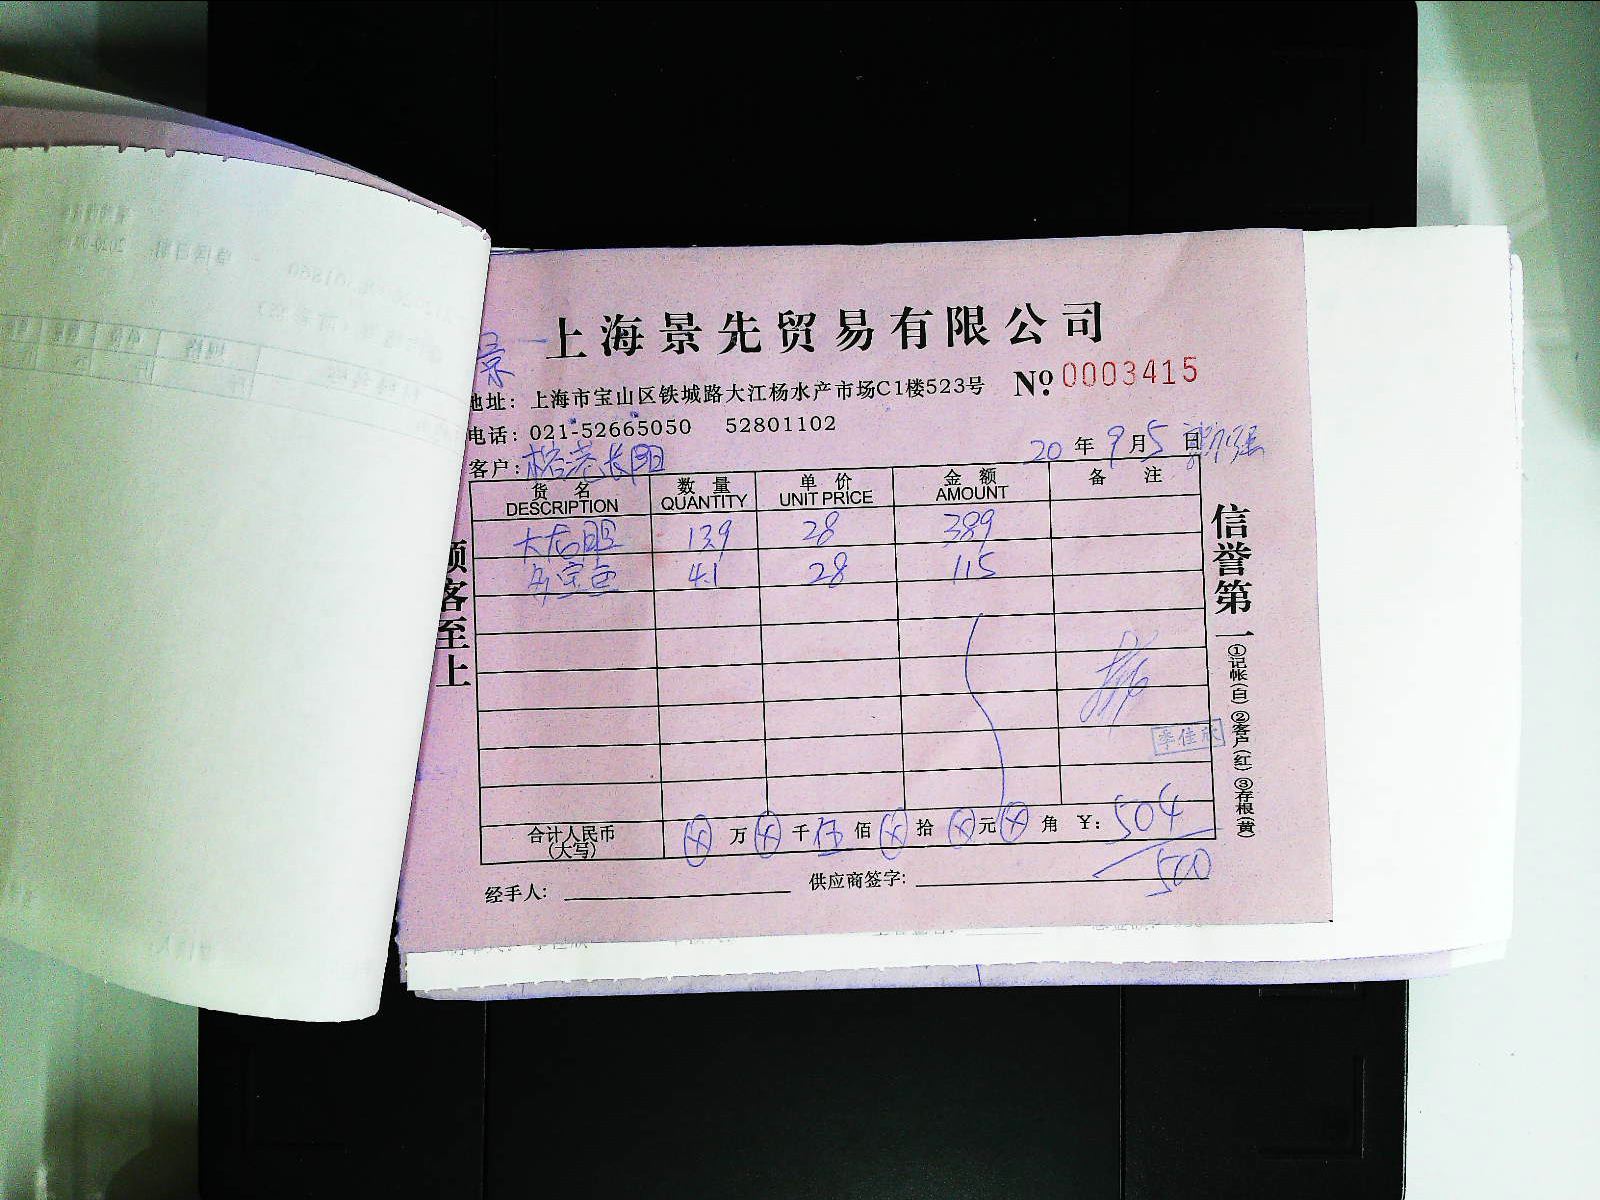 上海景先贸易有限公司
景
地址：上海市宝山区铁城路大江杨水产市场C1楼523号 Nº 0003415
电话：021-52665050 52801102
客户：榕港长阳 20年9月5日
货名 DESCRIPTION 数量 QUANTITY 单价 UNIT PRICE 金额 AMOUNT 备注
139 28 389
多宝鱼 4.1 28 115
顾客至上
信誉第一
①记帐(白) ②客户(红) ③存根(黄)
李佳欣
合计人民币(大写) 万 千伍佰 拾 元 角 ¥：504
500
经手人： 供应商签字：